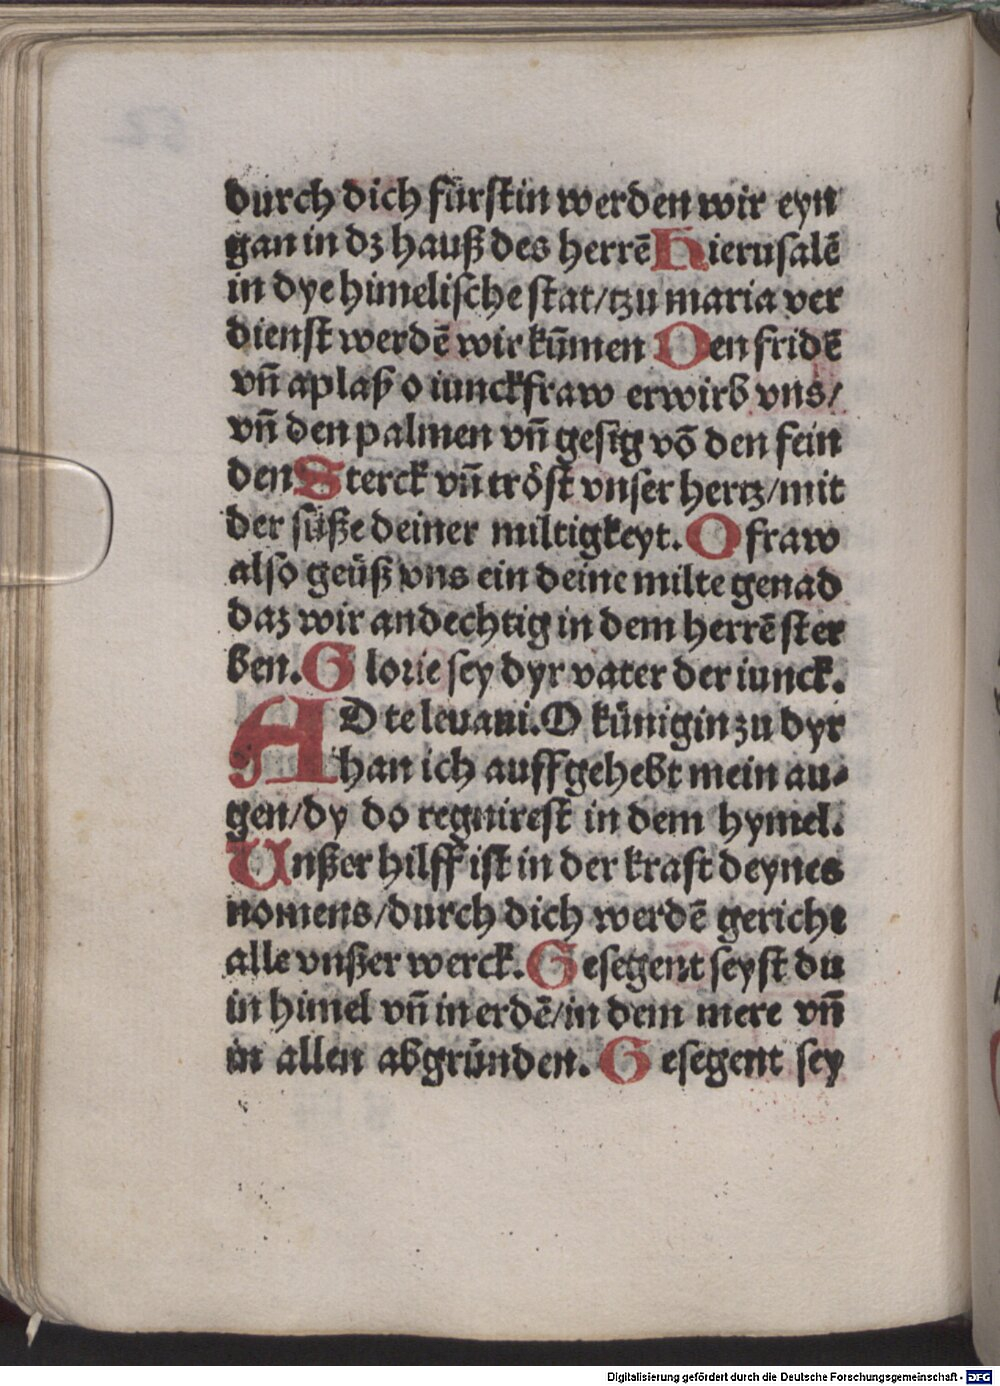 durch dich fürstin werden wir eyn
gan in dz hauß des herrē Hierusalē
in dye himelische stat/tzu maria ver
dienst werdē wir kūmen Den fridē
vn̄ aplaß o iunckfraw erwirb vns/
vn̄ den palmen vn̄ gesig vō den fein
den Sterck vn̄ tröst vnser hertz/mit
der süße deiner miltigkeyt. O fraw
also geüß vns ein deine milte genad
daz wir andechtig in dem herrē ster
ben. Glorie sey dyr vater der iunck.
AD te levavi. O künigin zu dyr
han ich auff gehebt mein au-
gen/dy do regnirest in dem hymel.
Unßer hilff ist in der kraft deynes
nomens/durch dich werdē gericht
alle vnßer werck. Gesegent seyst du
in himel vn̄ in erdē/in dem mere vn̄
in allen abgründen. Gesegent sey
Digitalisierung gefördert durch die Deutsche Forschungsgemeinschaft - DFG